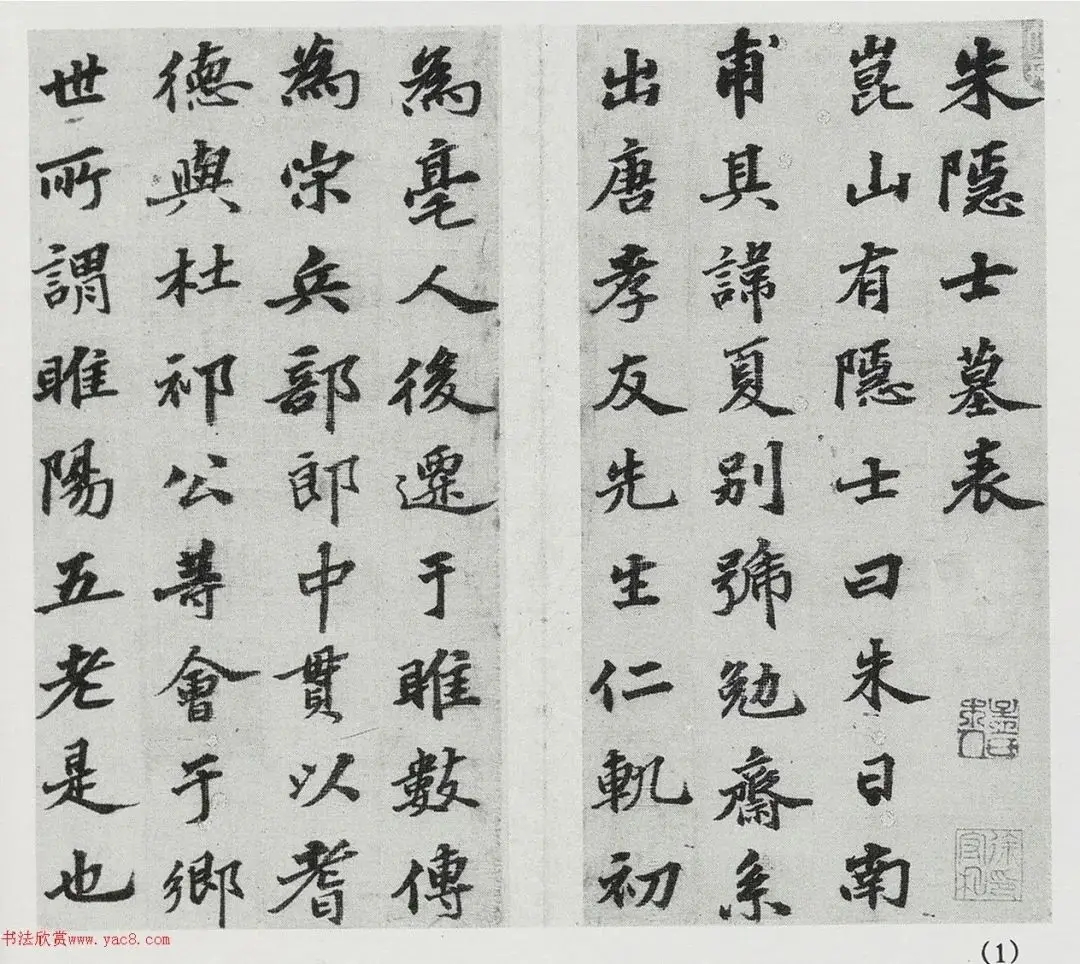 朱隱士墓表
崑山有隱士曰朱日南
甫其諱夏別號勉齋系
出唐孝友先生仁軌初
為亳人後遷于睢數傳
為宗兵部郎中貫以耆
德與杜祁公等會于鄉
世所謂睢陽五老是也
书法欣赏www.yac8.com
(1)